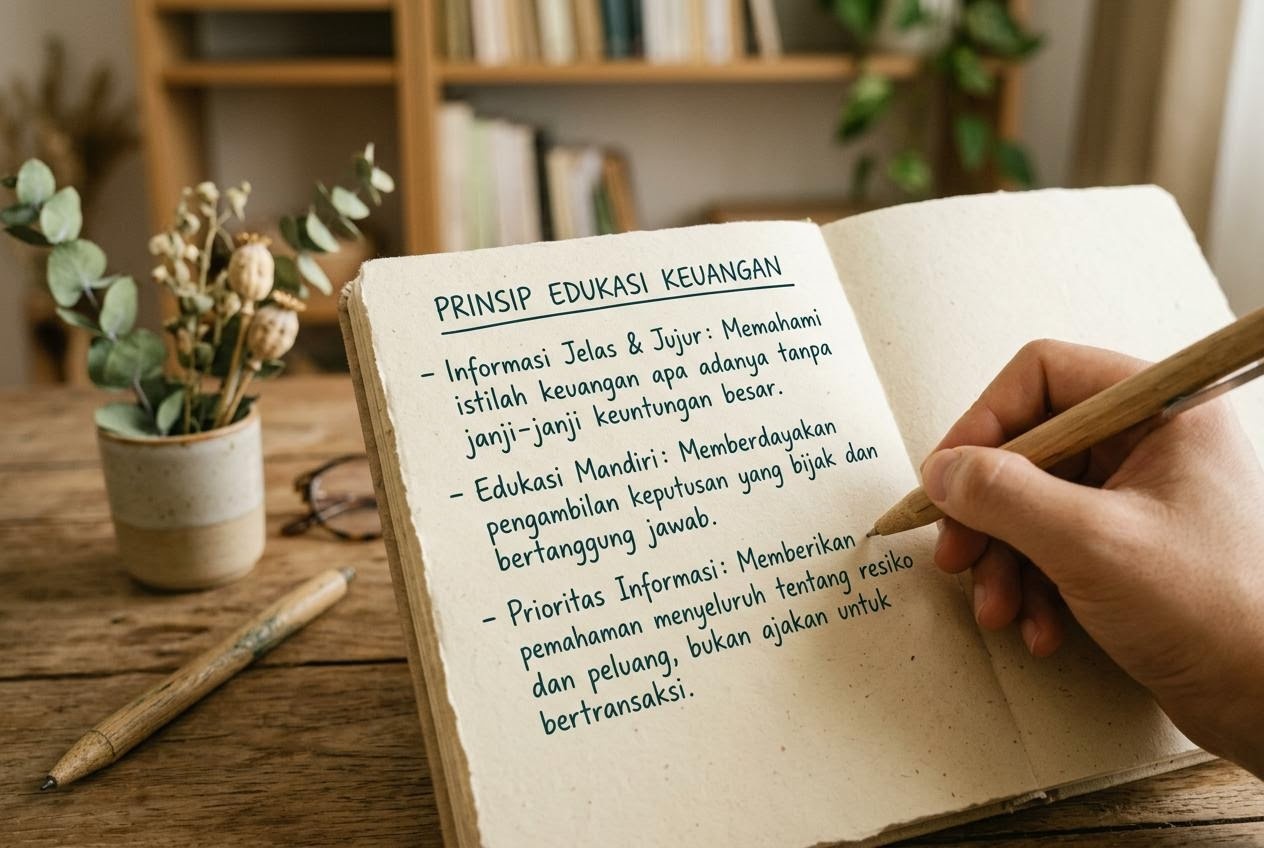 PRINSIP EDUKASI KEUANGAN
- Informasi Jelas & Jujur: Memahami
istilah keuangan apa adanya tanpa
janji-janji keuntungan besar.
- Edukasi Mandiri: Memberdayakan
pengambilan keputusan yang bijak dan
bertanggung jawab.
- Prioritas Informasi: Memberikan
pemahaman menyeluruh tentang resiko
dan peluang, bukan ajakan untuk
bertransaksi.